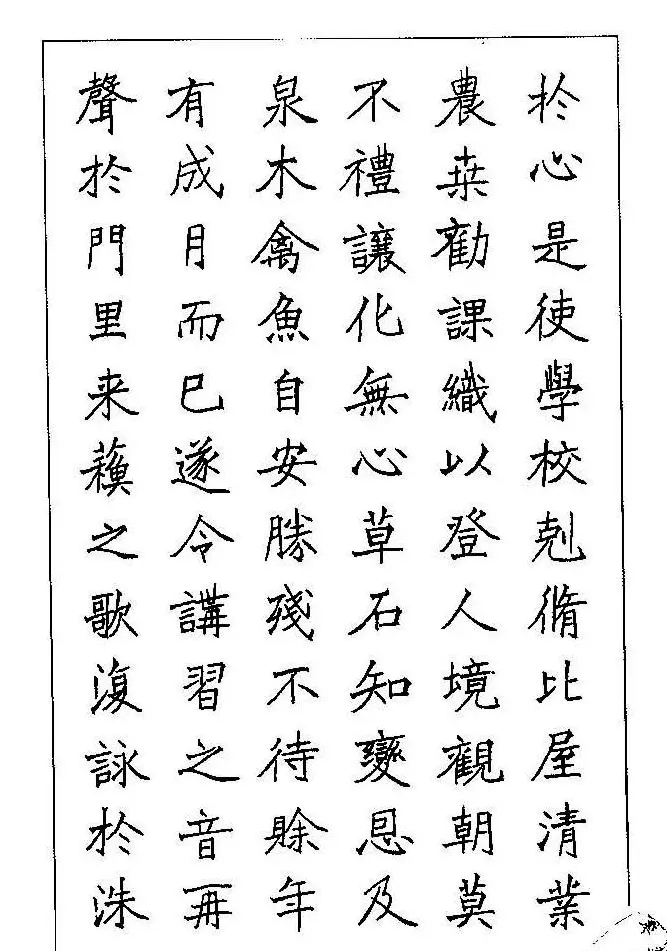 於心是使學校剋脩比屋清業
農桒勸課織以登人境觀朝莫
不禮讓化無心草石知變恩及
泉木禽魚自安勝殘不待賒年
有成月而已遂令講習之音再
聲於門里来蘓之歌復詠於洙